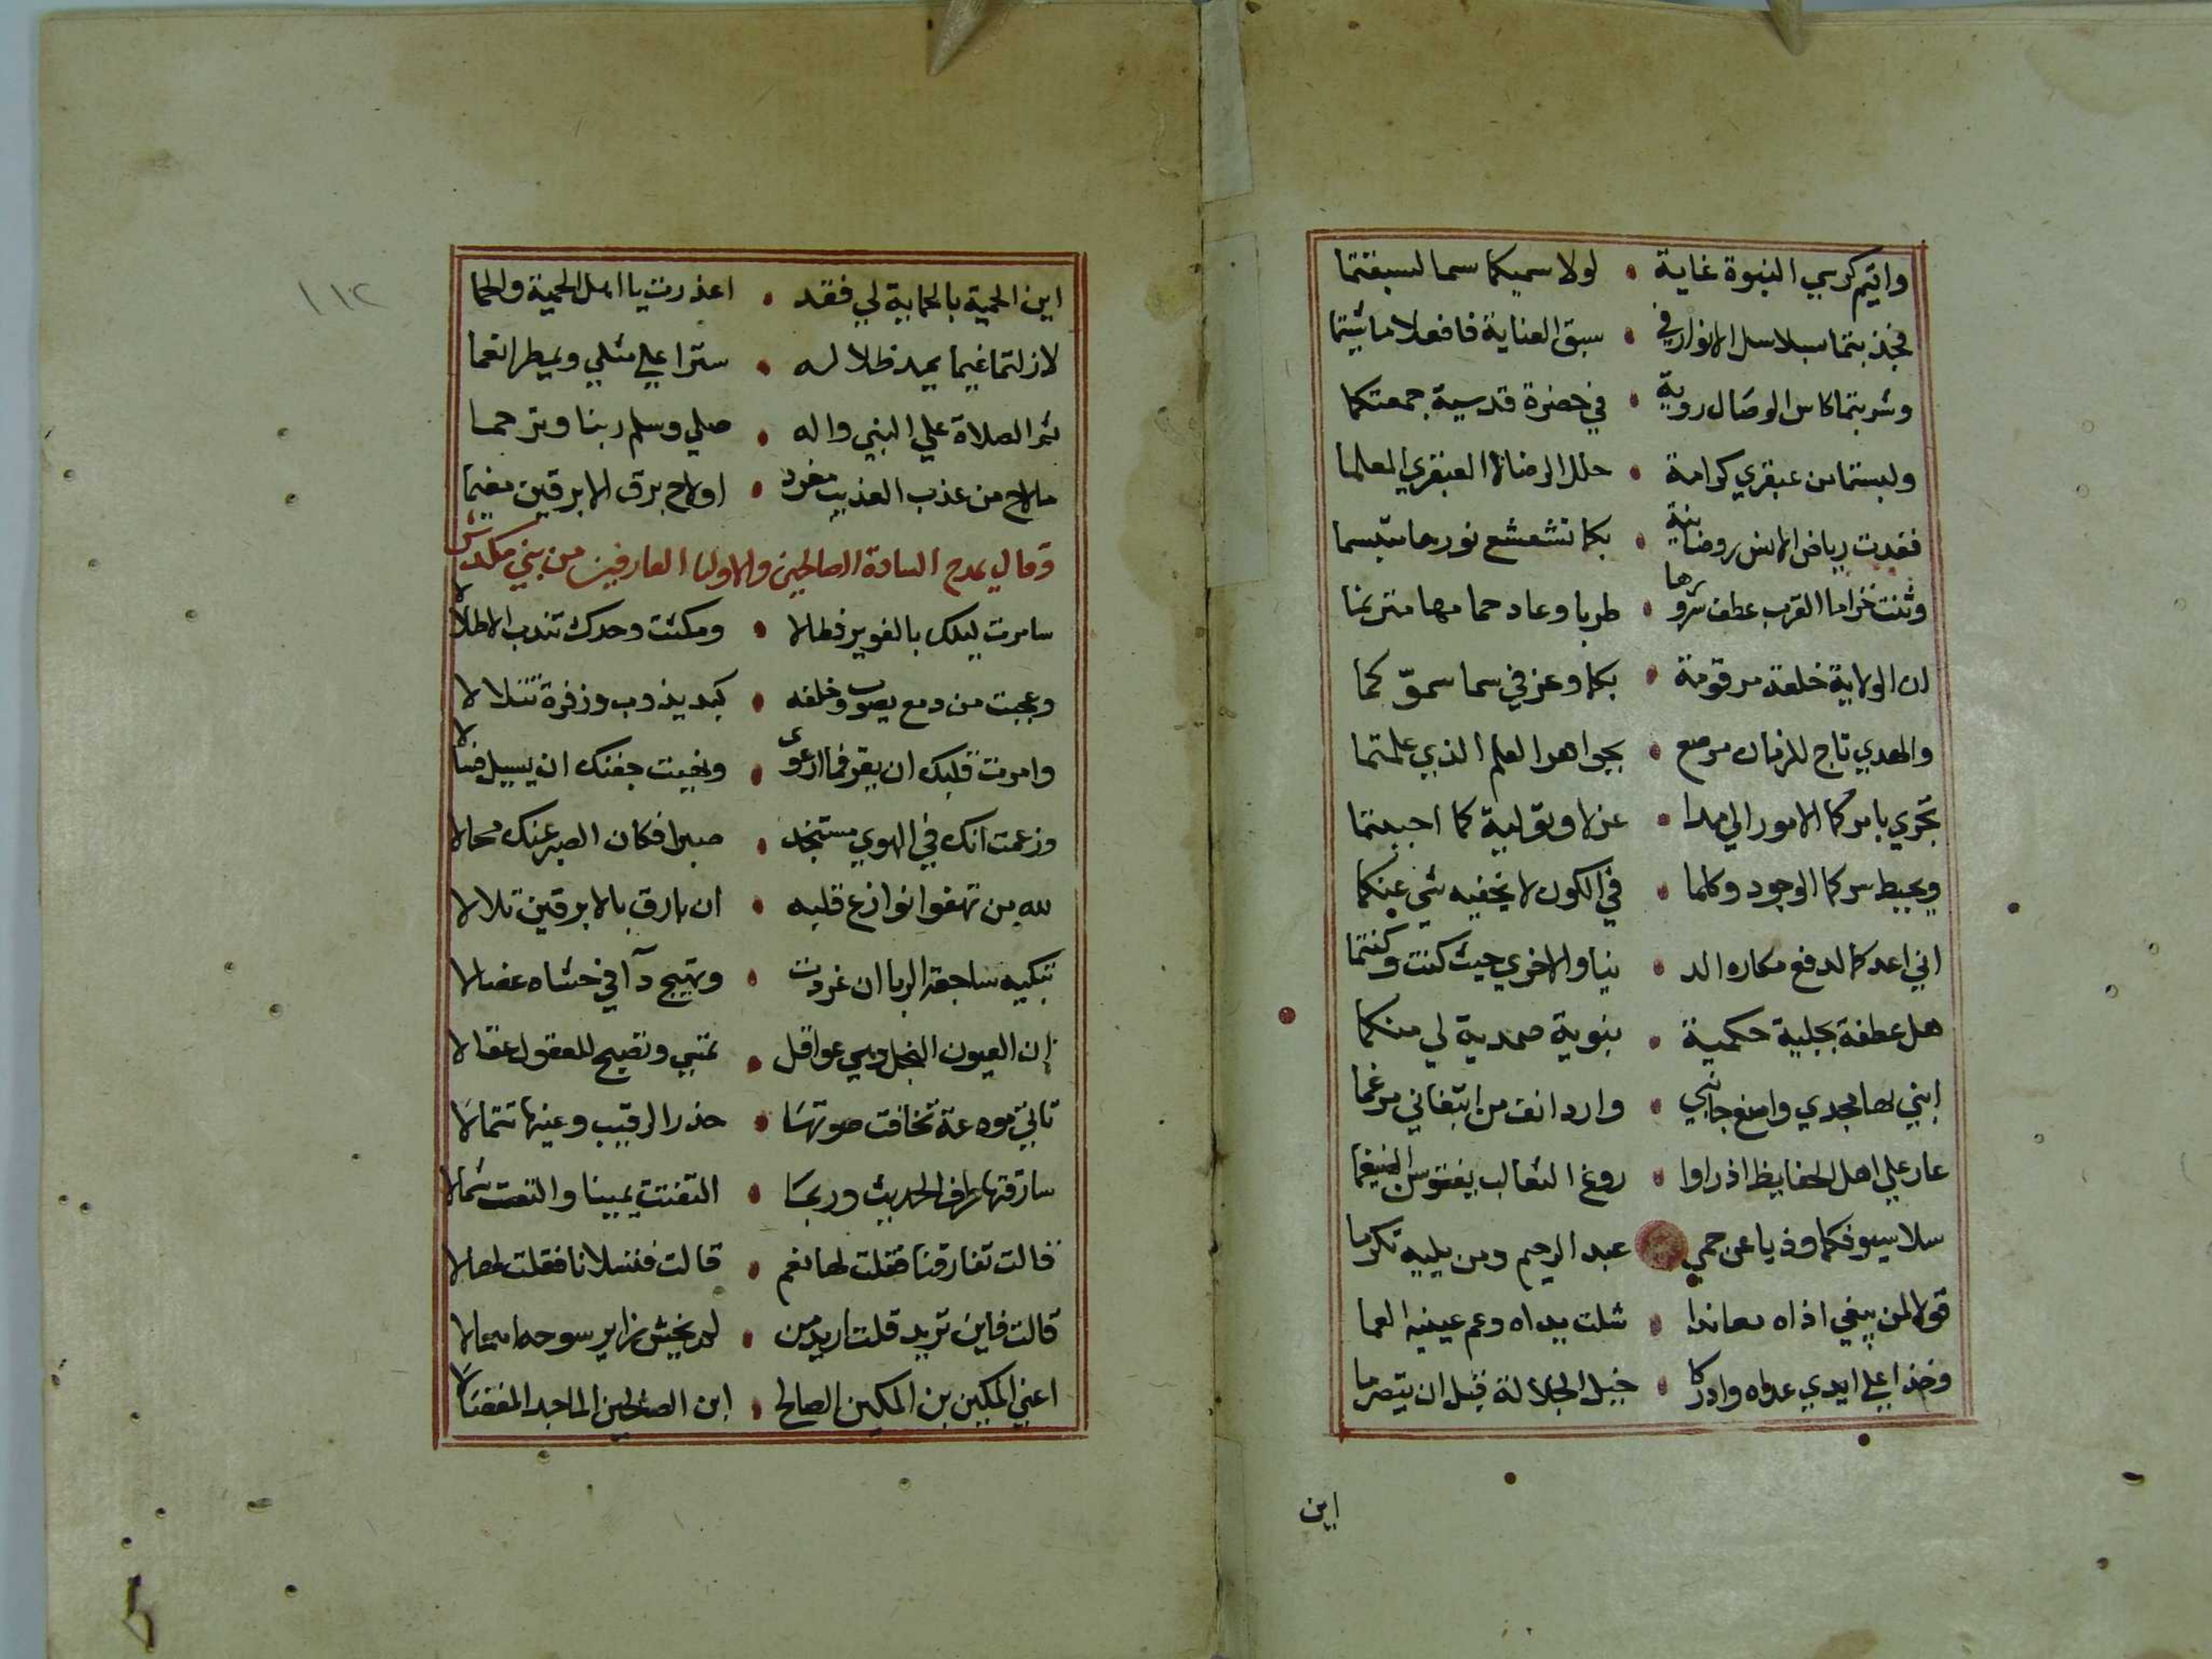 واتيم كرسي النبوة غاية • لولا سميكما سما لسبقتما
فجذبتما بسلاسل الانوار في • سبق العناية فافعلا ما شيتما
وشربتما كاس الوصال روية • في حضرة قدسية جمعتكما
ولبستما من عبقري كرامة • حلل الرضا لا العبقري المعلما
فغدت رياض الانس روضانية • بكما تشعشع نورها متبسما
وثنت خزاما القرب عطف سرورها • طربا وعاد حمامها مترنما
ان الولاية خلعة مرقومة • بكما وعز في سما سموّ كما
والهدي تاج للزمان مرصع • بجواهر العلم الذي علمتما
تجري بامركما الامور الي مدا • عزلا وتولية كما احببتما
ويحيط سركما الوجود وكلما • في الكون لا يخفيه شي عنكما
اني اعدكما لدفع مكاره الد • نيا والاخري حيث كنت وكنتما
هل عطفة بجلية حكمية • نبوية صمدية لي منكما
ابني لها مجدي وامنع جانبي • وارد انف من ابتغاني مرغما
عار علي اهل الحفايظ اذ راوا • روغ الثعالب يفترس الضيغما
سلا سيوفكما وذبا عن حمي • عبد الرحيم ومن يليه تكرما
قولا لمن يبغي اذاه معاندا • شلت يداه وعم عينيه العما
وخذا علي ايدي عداه وادركا • خيل الجلالة قبل ان يتصرما
اين
١١٢
اين الحمية بالحماية لي فقد • اعذرت يا اهل الحمية والحما
لازلتما غيما يميد ظلاله • سترا علي مثلي ويمطر انعما
ثم الصلاة علي النبي واله • صلي وسلم ربنا وترحما
ملاح من عذب العذيب مغرد • اولاح برق الابرقين مغيما
وقال يمدح السادة الصالحين والاوليا العارفين من بني مكدش
سامرت ليلك بالغوير فطالا • ومكثت وحدك تندب الاطلالا
وعجبت من دمع يصوب وخلفه • كبد يذوب وزفرة تتلالا
وامرت قلبك ان يقر فما ارعوى • ونهيت جفنك ان يسيل فسالا
وزعمت انك في الهوي مستنجد • صبرا فكان الصبر عنك محالا
لله من تهفوا نوازع قلبه • ان بارق بالابرقين تلالا
تبكيه ساجعة الربا ان غردت • وتهيج دآ في حشاه عضالا
ان العيون النجل وهي عواقل • تمسي وتصبح للعقول عقالا
تاتي مودعة تخافت صوتها • حذر الرقيب وعينها تتمالا
سارقتها طرف الحديث وربما • التفتت يمينا والتفت شمالا
قالت تفارقنا فقلت لها نعم • قالت فتسلانا فقلت لها لا
قالت فاين تريد قلت اريد من • لم يخش زاير سوحه امحالا
اعني المكين بن المكين الصالح • ابن الصالحين الماجد المفضالا